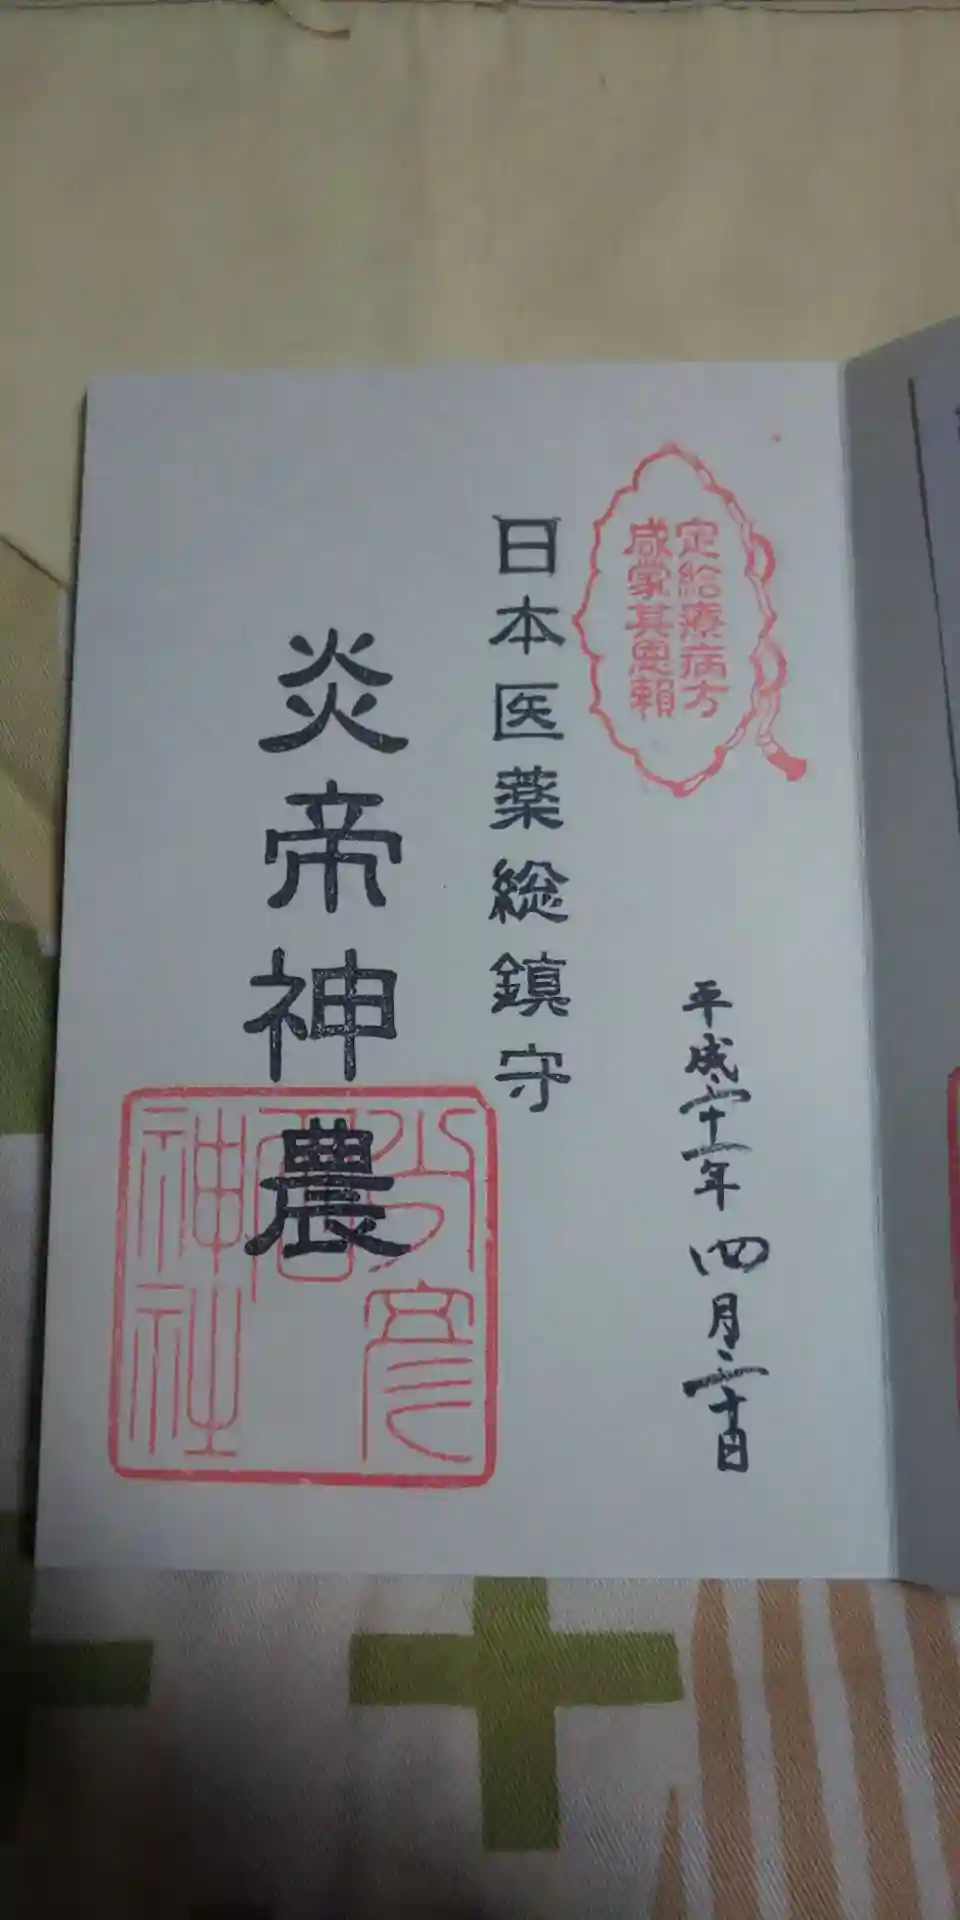 定給療病方
咸蒙其恩頼
平成三十一年 四月三十日
日本医薬総鎮守
炎帝神農
少彦名神社